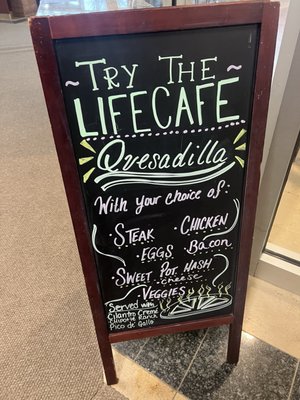 ~ TRY THE ~
LIFECAFE
Quesadilla
With your choice of:
STEAK CHICKEN
• EGGS • BACON
SWEET POT. HASH
• cheese
• VEGGIES •
Served with
Cilantro Creme
Chipotle Ranch
Pico de Gallo